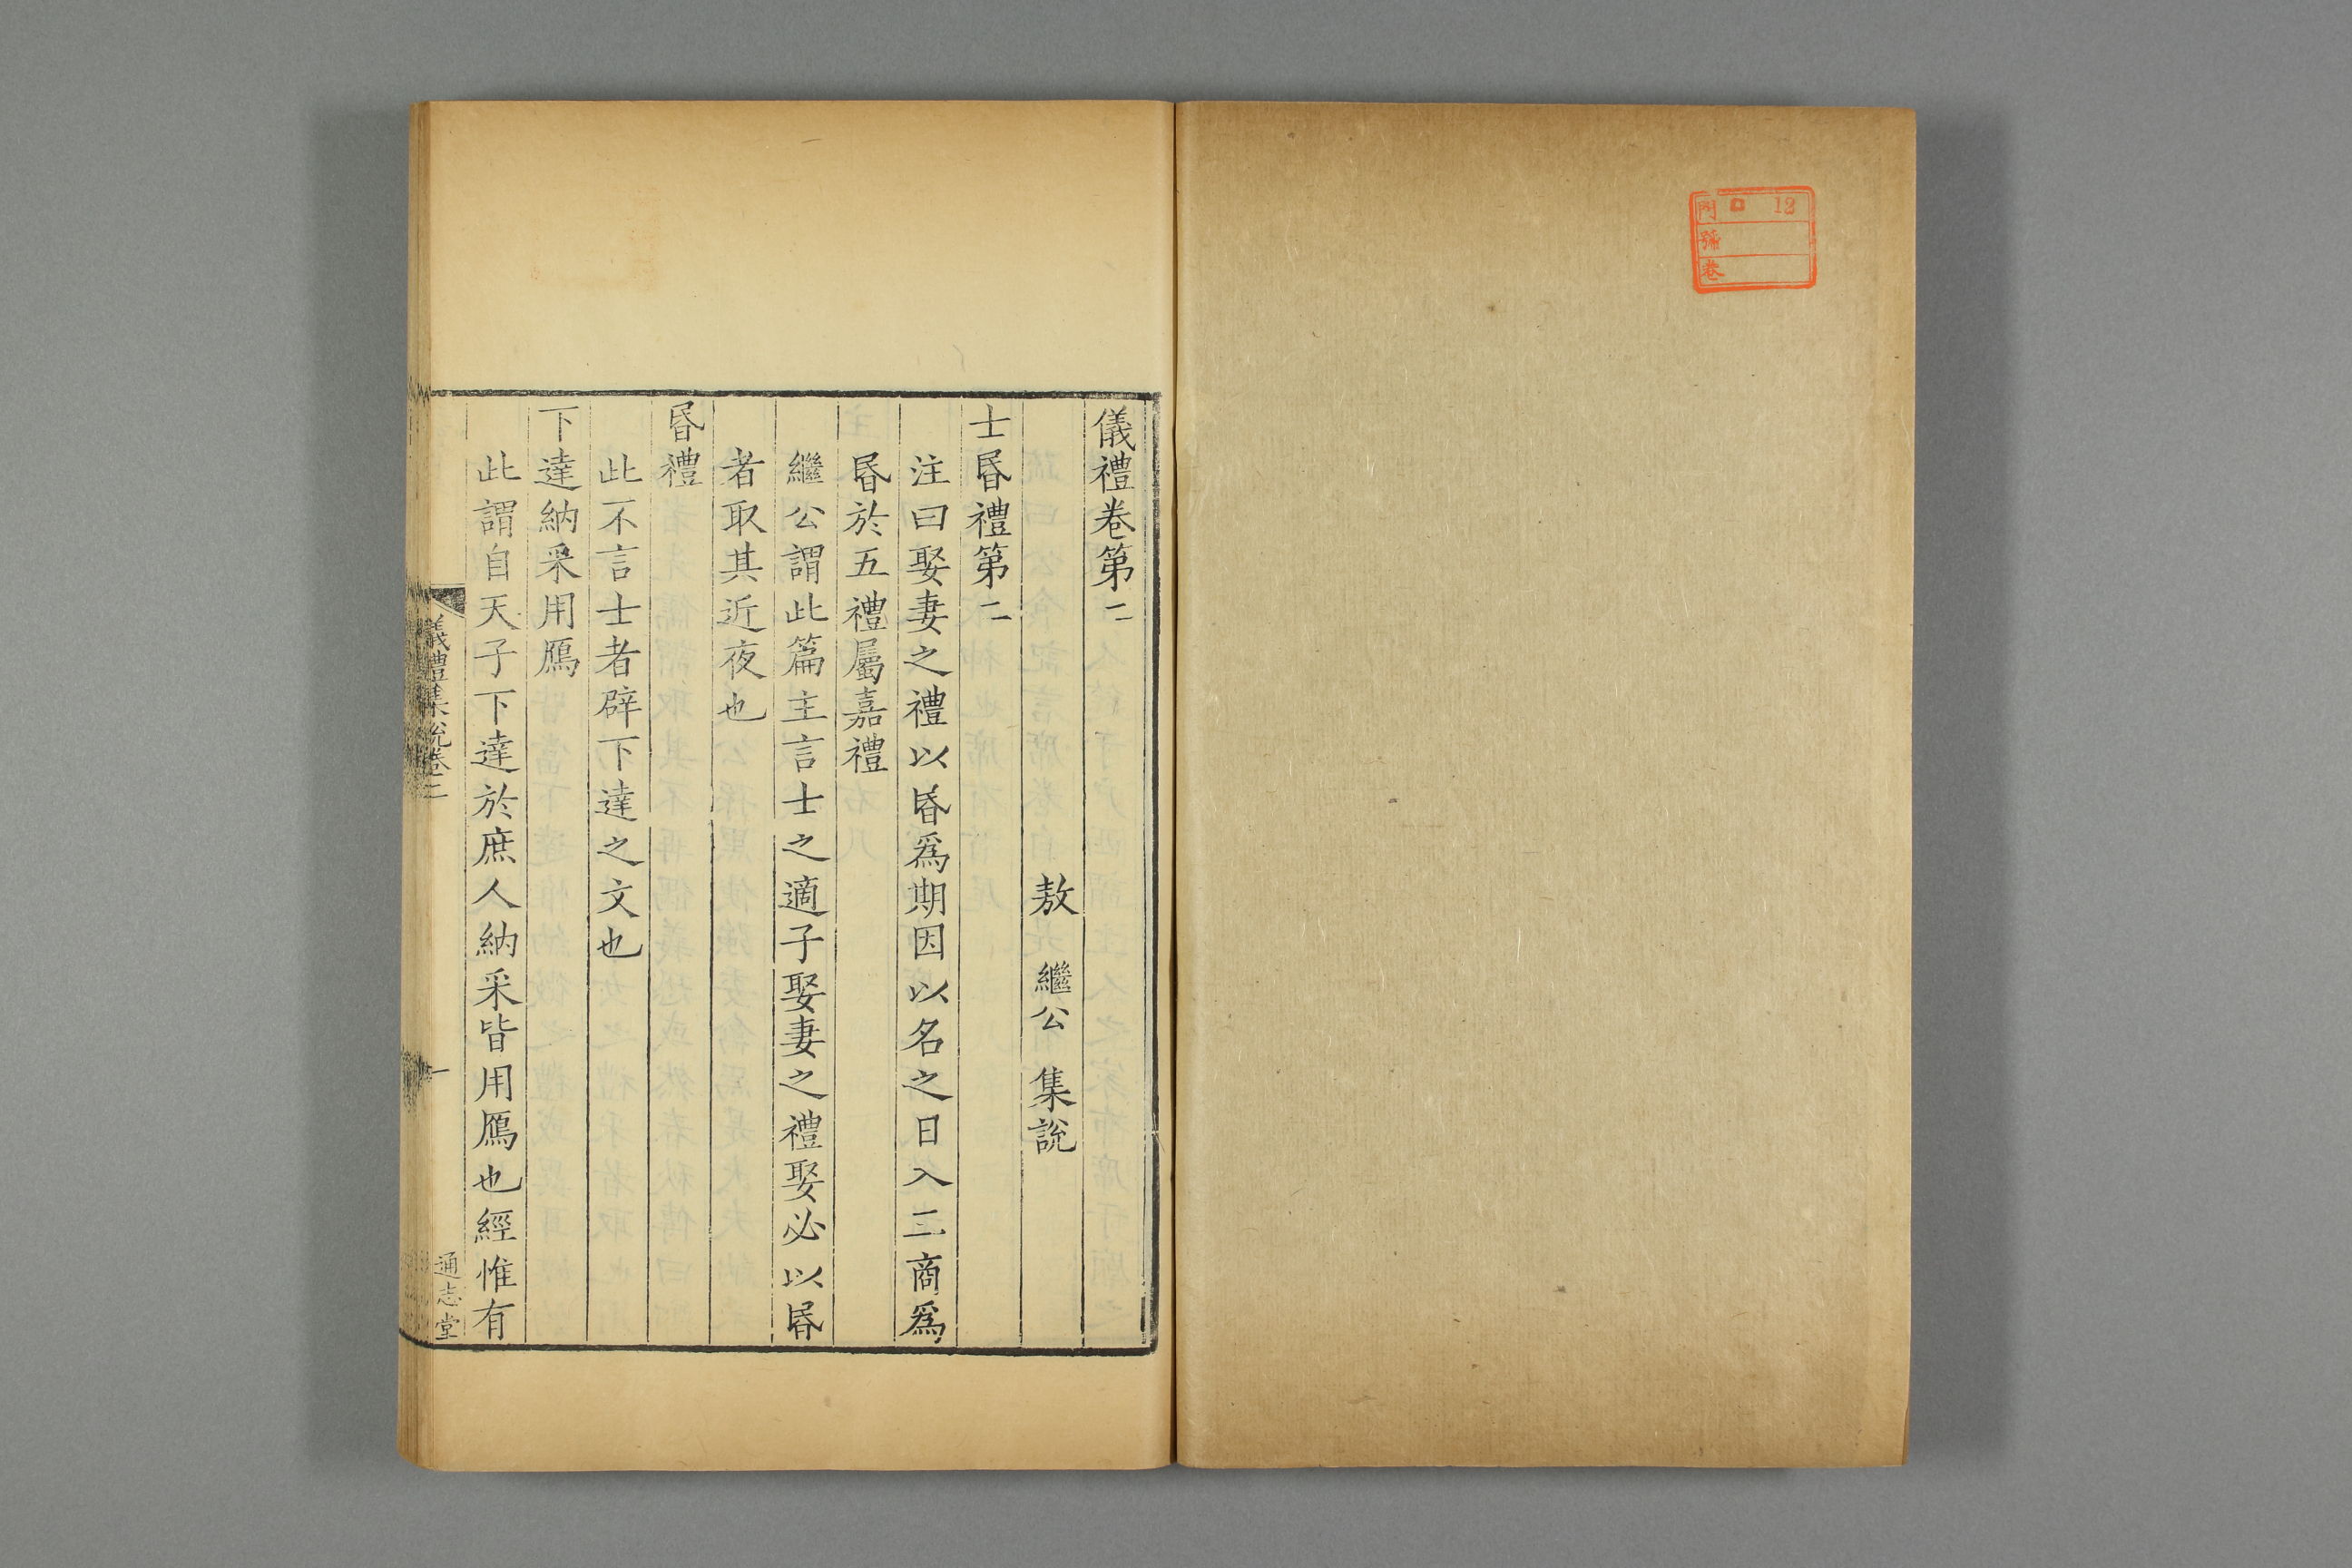 門 口 12
號
卷
儀禮卷第二
敖 繼公 集說
士昬禮第二
注曰娶妻之禮以昬爲期因以名之日入三商爲
昬於五禮屬嘉禮
繼公謂此篇主言士之適子娶妻之禮娶必以昬
者取其近夜也
昬禮
此不言士者辟下達之文也
下達納采用鴈
此謂自天子下達於庶人納采皆用鴈也經惟有
儀禮集說卷二
一
通志堂